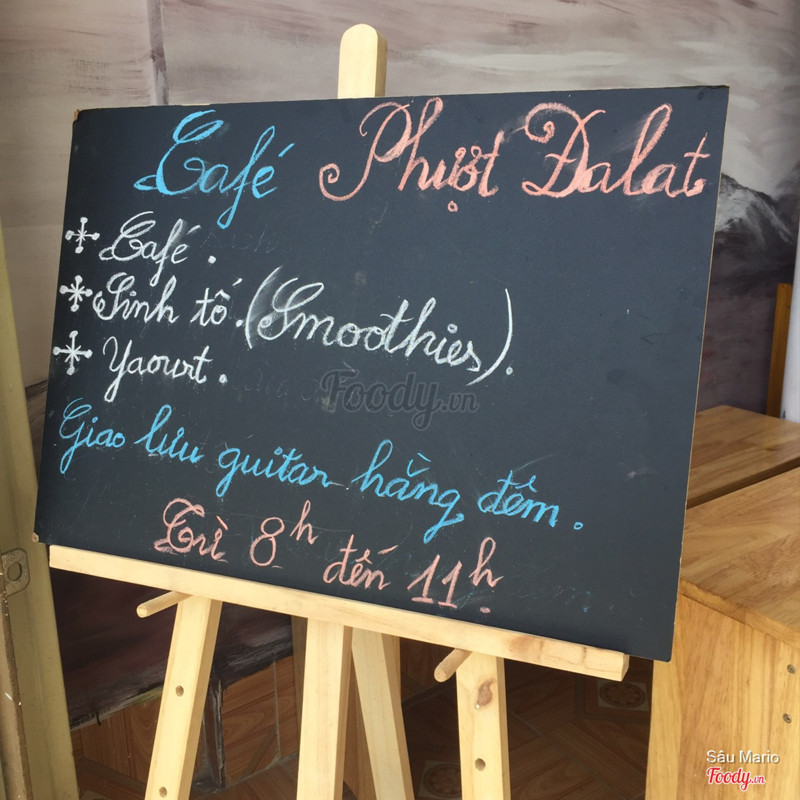 Café Phượt Đalat
* Café.
* Sinh tố. (Smoothies).
* Yaourt.
Foody.vn
Giao lưu guitar hằng đêm.
Từ 8h đến 11h.
Sâu Mario
Foody.vn